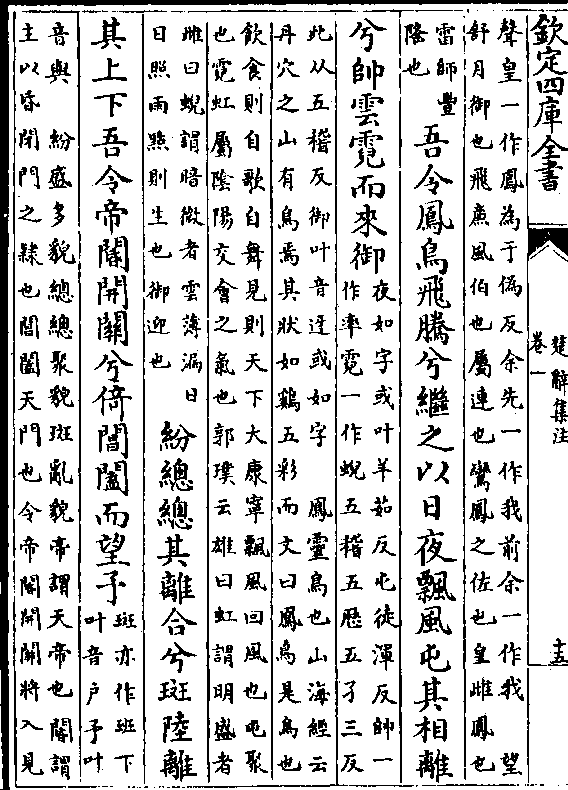 欽定四庫全書
楚辭集注
卷一
十五
聲皇一作鳳為于偽反余先一作我前余一作我　望
舒月御也飛廉風伯也屬連也鸞鳳之佐也皇雌鳳也
雷師豐
隆也
吾令鳳鳥飛騰兮繼之以日夜飄風屯其相離
兮帥雲霓而來御
夜如字或叶羊茹反屯徒渾反帥一
作率霓一作蜺五稽五歷五孑三反
此从五稽反御叶音迓或如字　鳳靈鳥也山海經云
丹穴之山有鳥焉其狀如鷄五彩而文曰鳳鳥是鳥也
飲食則自歌自舞見則天下大康寧飄風回風也屯聚
也霓虹屬陰陽交會之氣也郭璞云雄曰虹謂明盛者
雌曰蜺謂暗微者雲薄漏日
日照雨點則生也御迎也
紛總總其離合兮斑陸離
其上下吾令帝閽開關兮倚閶闔而望予
斑亦作班下
叶音户予叶
音與　紛盛多貌總總聚貌斑亂貌帝謂天帝也閽謂
主以昏閉門之隸也閶闔天門也令帝閽開關將入見